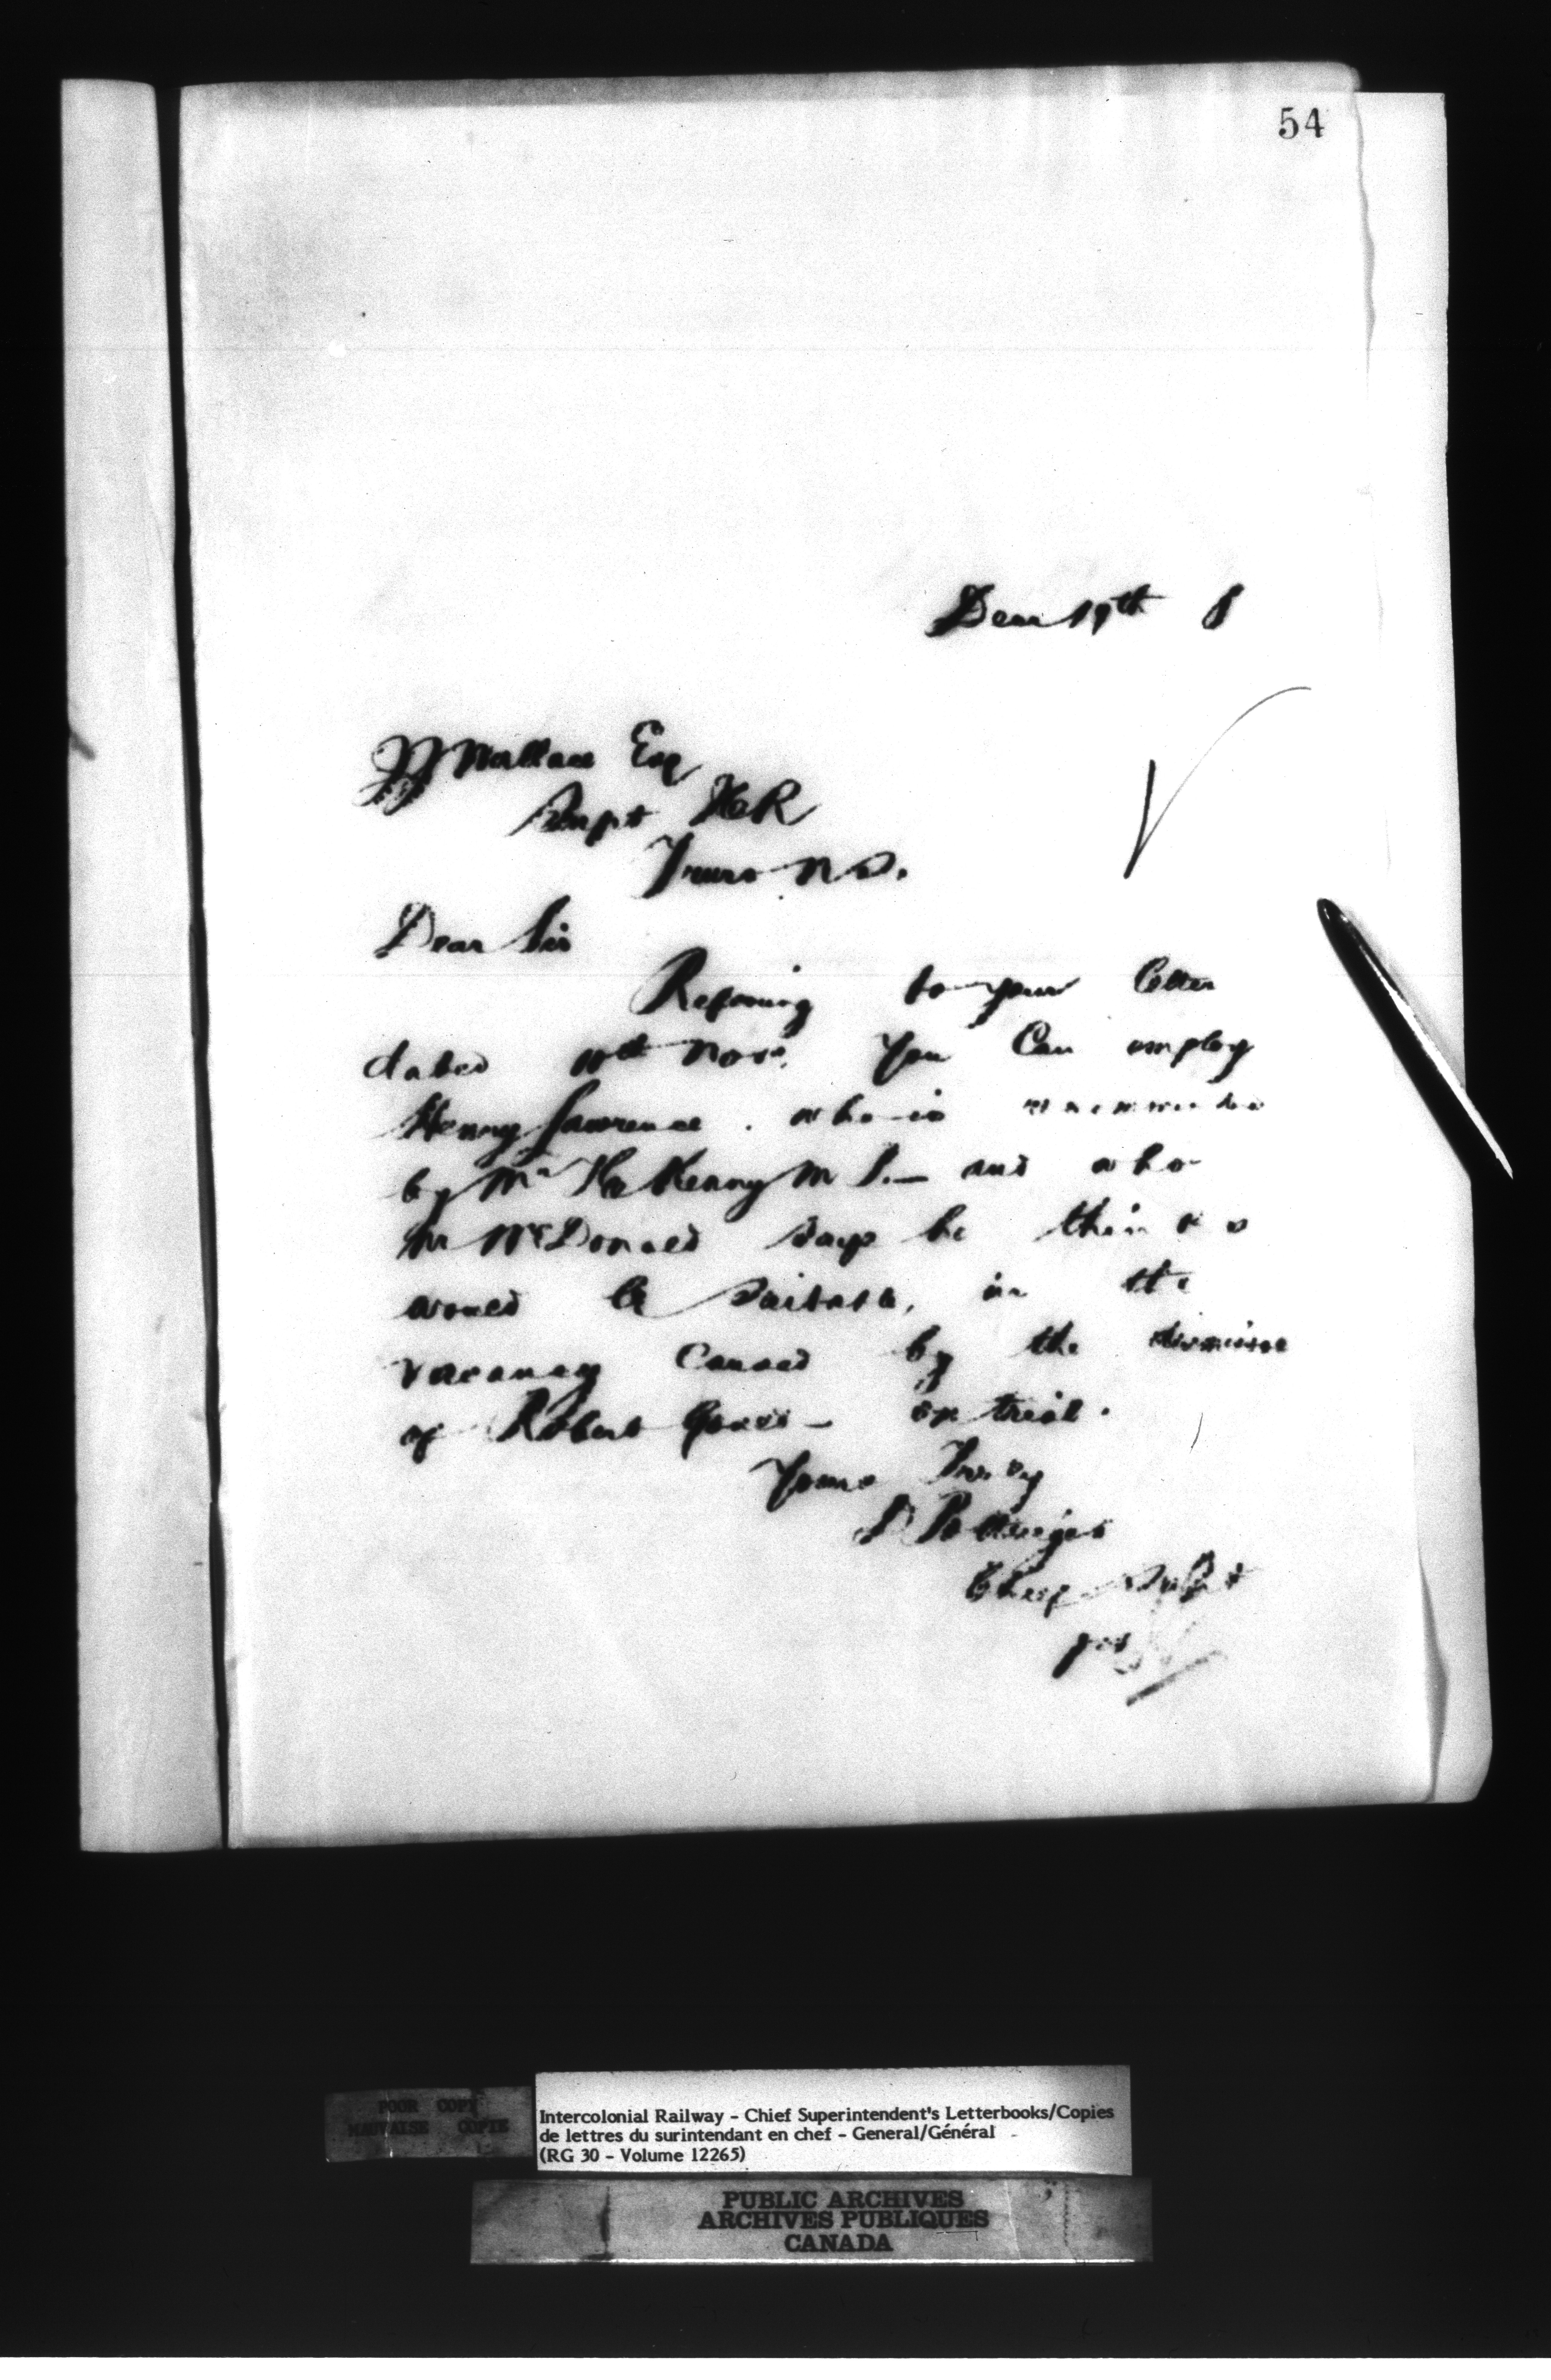 54
Decr 19th 8
JJ Wallace Esq
Supt ICR
Truro N.S.
Dear Sir
Refering to your letter
dated Novr. You Can employ
Henry Lawrence. who is
by Mr Kenny M P. — and who
Mr McDonald says he thinks
would be suitable, in the
vacancy caused by the dismissal
of Robert — on trial.
Yours Truly
D Pottinger
Chief Supt
per
POOR COPY
MAUVAISE COPIE
Intercolonial Railway - Chief Superintendent's Letterbooks/Copies
de lettres du surintendant en chef - General/Général
(RG 30 - Volume 12265)
PUBLIC ARCHIVES
ARCHIVES PUBLIQUES
CANADA